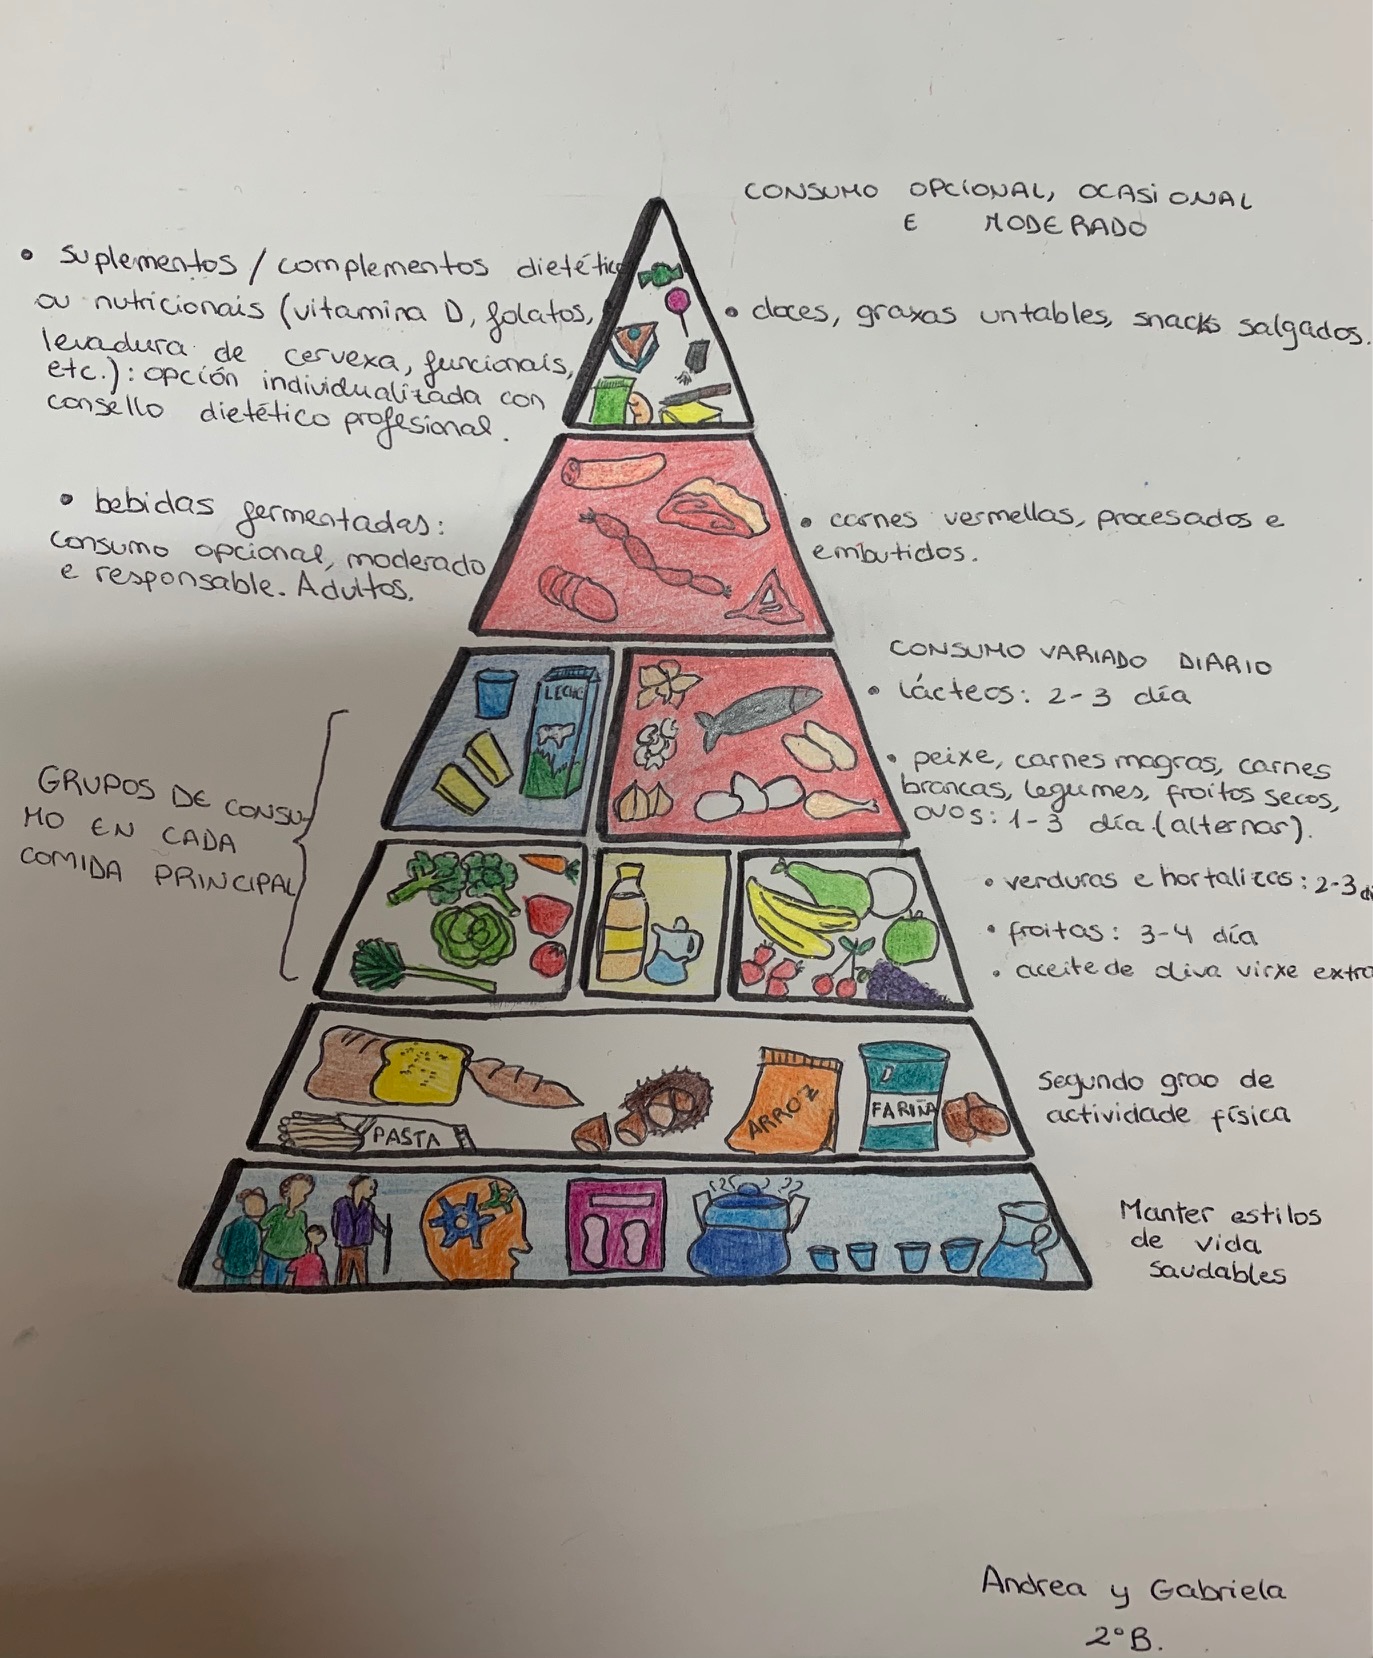 CONSUMO OPCIONAL, OCASIONAL
E MODERADO
• suplementos / complementos dietétic
ou nutricionais (vitamina D, folatos,
levadura de cervexa, funcionais,
etc.): opción individualizada con
consello dietético profesional.
• doces, graxas untables, snacks salgados.
• bebidas fermentadas:
consumo opcional, moderado
e responsable. Adultos.
• carnes vermellas, procesados e
embutidos.
CONSUMO VARIADO DIARIO
• lácteos: 2-3 día
LECHE
• peixe, carnes magras, carnes
brancas, legumes, froitos secos,
ovos: 1-3 día (alternar).
GRUPOS DE CONSU-
MO EN CADA
COMIDA PRINCIPAL
• verduras e hortalizas: 2-3 dí
• froitas: 3-4 día
• aceite de oliva virxe extra
PASTA
ARROZ
FARIÑA
Segundo grao de
actividade física
Manter estilos
de vida
saudables
Andrea y Gabriela
2ºB.